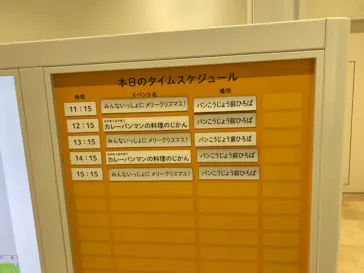 本日のタイムスケジュール
時間 イベント名 場所
11：15 みんないっしょにメリークリスマス！ パンこうじょう前ひろば
12：15 カレーパンマンの料理のじかん パンこうじょう前ひろば
13：15 みんないっしょにメリークリスマス！ パンこうじょう前ひろば
14：15 カレーパンマンの料理のじかん パンこうじょう前ひろば
15：15 みんないっしょにメリークリスマス！ パンこうじょう前ひろば